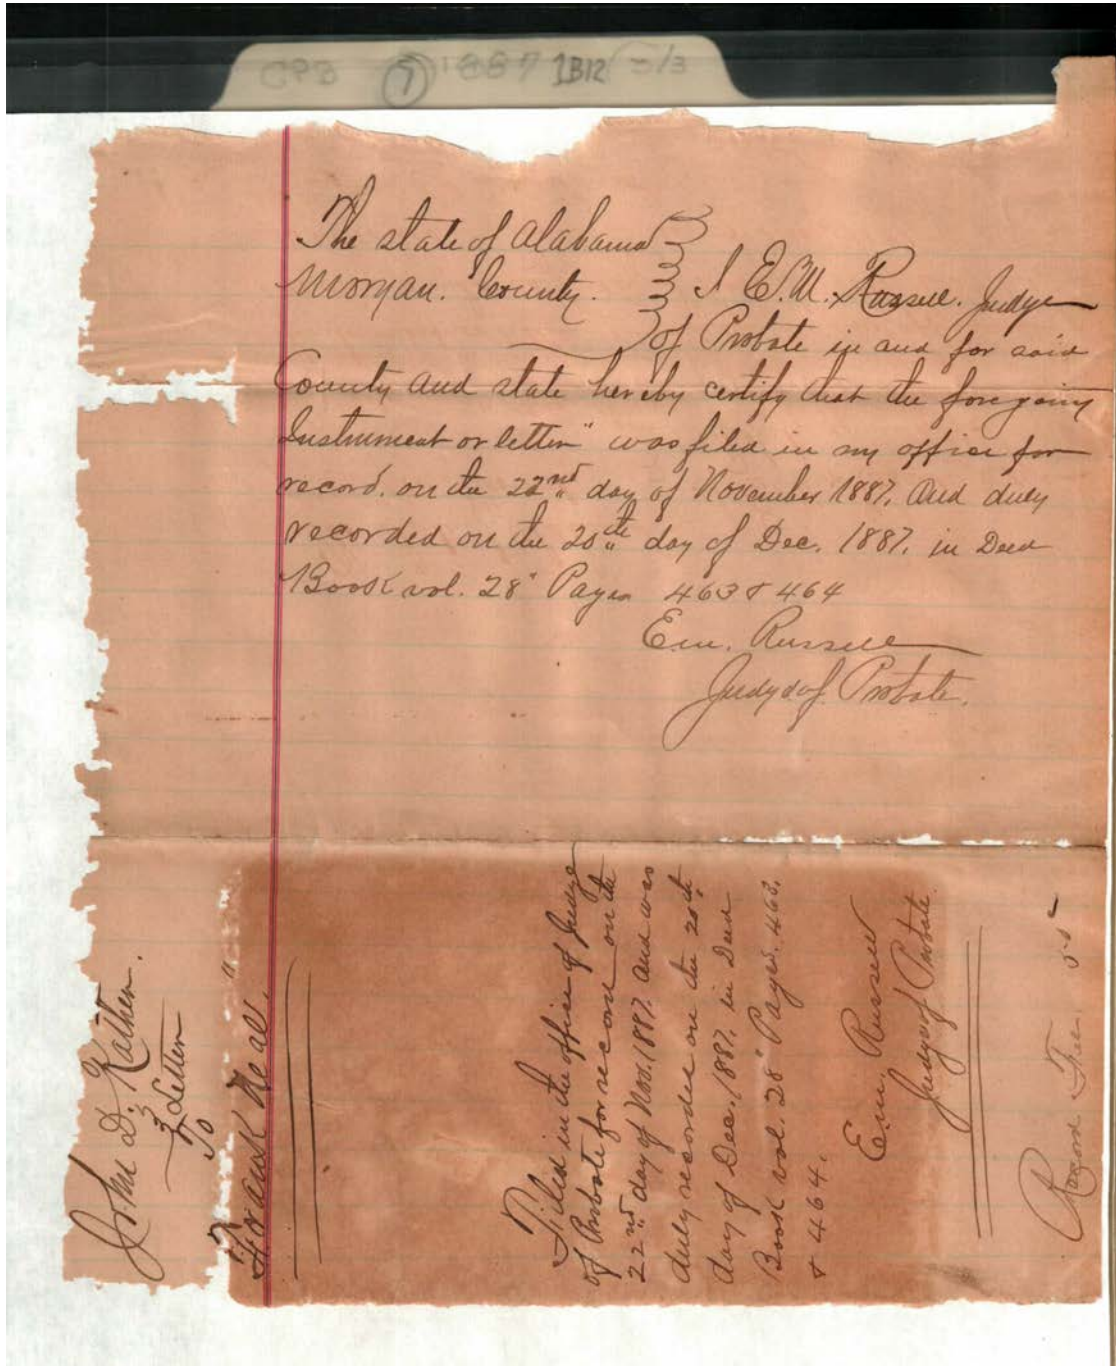 1887 1B12
7
The state of Alabama
Morgan. County. I E.M. Russell. Judge
of Probate in and for said
County and state hereby certify that the foregoing
Instrument or letter" was filed in my office for
record. on the 22nd day of November 1887. And duly
recorded on the 20th day of Dec. 1887. in Deed
Book vol. 28" Pages 463 & 464
E.M. Russell
Judge of Probate.
John D.
Letter
To
Frank Neal.
Filed in the office of Judge
of Probate for record on the
22nd day of Nov. 1887. And was
duly recorded on the 20th
day of Dec. 1887. in Deed
Book vol. 28" Pages. 463.
& 464.
E.M. Russell
Judge of Probate
Record Fee.